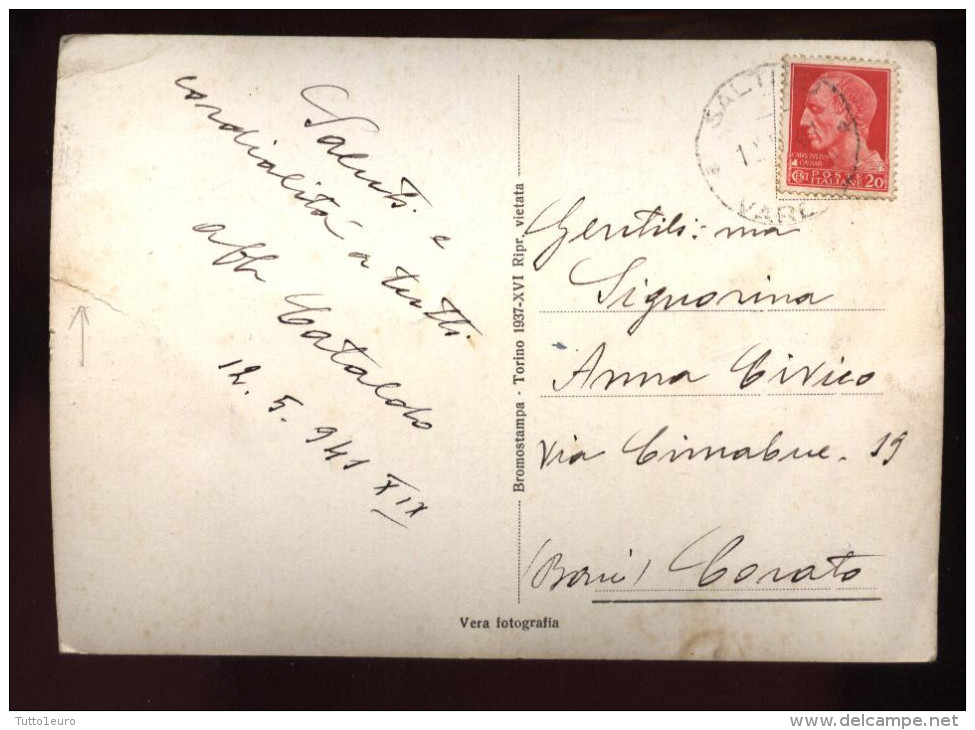 Saluti e
cordialità a tutti
aff. Cataldo
12. 5. 941 XIX
Bromostampa - Torino 1937-XVI Ripr. vietata
SALT
VARE
CAIVS IVLIVS
CAESAR
CENT POSTE 20
ITALIANE
Gentilis:ma
Signorina
Anna Civico
via Cimabue. 19
(Bari) Corato
Vera fotografia
Tutto1euro
www.delcampe.net